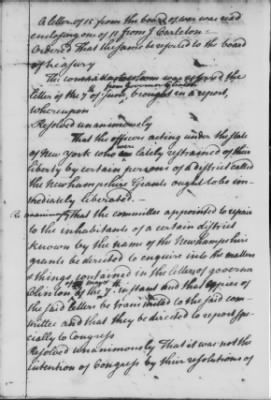 A letter of 15 from the board of war was read
enclosing one of 11 from J Carleton
Ordered That the same be referred to the board
of treasury
The committee to whom was referred the
from governor Clinton
letter of the 7th of June brought in a report,
whereupon
Resolved unanimously
That the officers acting under the state
of New York who were lately restrained of their
liberty by certain persons of a district called
the Newhampshire Grants ought to be im-
mediately liberated.
Res unanimously That the committee appointed to repair
to the inhabitants of a certain district
known by the name of the Newhampshire
grants be directed to enquire into the matters
& things contained in the letters of governor
Clinton of the 7 instant and that copies of
the said letters be transmitted to the said com-
mittee and that they be directed to report spe-
cially to Congress
Resolved unanimously That it was not the
intention of Congress by their resolutions of